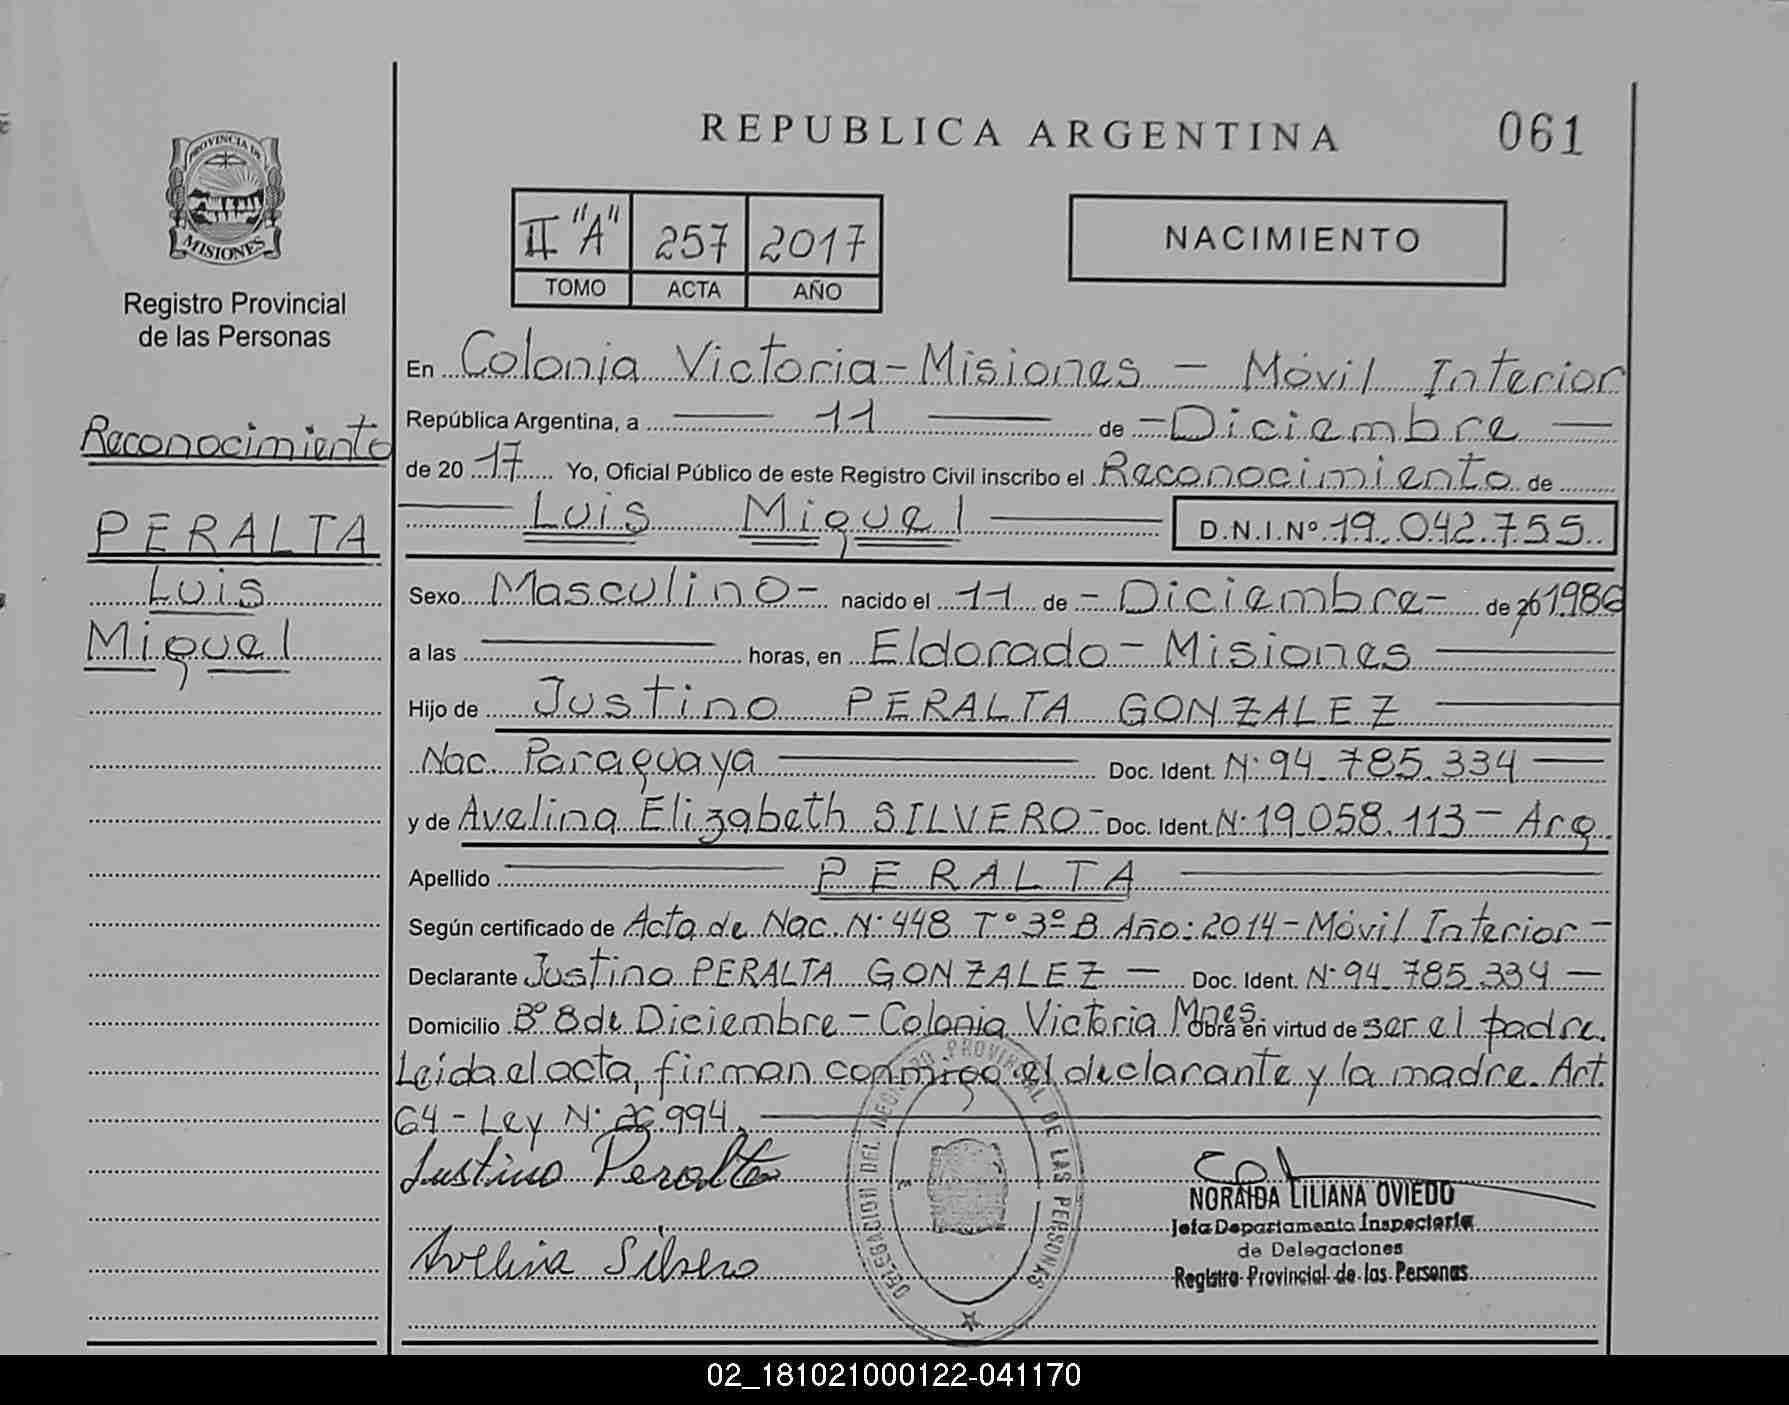 REPUBLICA ARGENTINA
061
PROVINCIA DE
MISIONES
Registro Provincial
de las Personas
II "A" 257 2017
TOMO ACTA AÑO
NACIMIENTO
Reconocimiento
PERALTA
Luis
Miguel
En Colonia Victoria - Misiones - Móvil Interior
República Argentina, a 11 de - Diciembre
de 20 17 Yo, Oficial Público de este Registro Civil inscribo el Reconocimiento de
Luis Miguel D.N.I.Nº 19.042.755
Sexo Masculino - nacido el 11 de - Diciembre - de 1986
a las horas, en Eldorado - Misiones
Hijo de Justino PERALTA GONZALEZ
Nac. Paraguaya Doc. Ident. Nº 94.785.334
y de Avelina Elizabeth SILVERO - Doc. Ident. Nº 19.058.113 - Arg.
Apellido PERALTA
Según certificado de Acta de Nac. Nº 448 Tº 3º B Año: 2014 - Móvil Interior -
Declarante Justino PERALTA GONZALEZ - Doc. Ident. Nº 94.785.334 -
Domicilio Bº 8 de Diciembre - Colonia Victoria Mnes. Obra en virtud de ser el padre.
Leida el acta, firman conmigo el declarante y la madre. Art.
64 - Ley Nº 26.994.
Justino Peralta
Avelina Silvero
DELEGACION DEL REGISTRO PROVINCIAL DE LAS PERSONAS
NORAIDA LILIANA OVIEDO
Jefa Departamento Inspectoría
de Delegaciones
Registro Provincial de las Personas
02_181021000122-041170